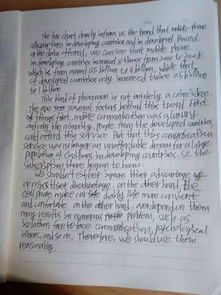 The bar chart clearly informs us the trend that mobile-phone
subscriptions in developing countries and in developed. Based
on the data offered, we can see that mobile phone
in developing countries increased times from 2000 to
which is from around billion to billion, while that
of developed countries only increased twice as billion
to 1 billion.
This kind of phenomenon is not entirely a coincidence.
There are several factors behind this trend. First
of things first, mobile communication was a luxury
at the beginning, people from the developed countries
could afford this service. But that this communication
service was no longer an unaffordable dream for a large
population of customs in developing countries. so the
subscriptions there began to boom.
We shouldn't either ignore this advantage or
on the other hand, the
cell phone makes our daily life more convenient
and comfortable. on the other hand, overdependent on them
may results in numerous problem, such as
face-to-face communication, psychological
illness, and so on. Therefore, we should use them
reasonably.